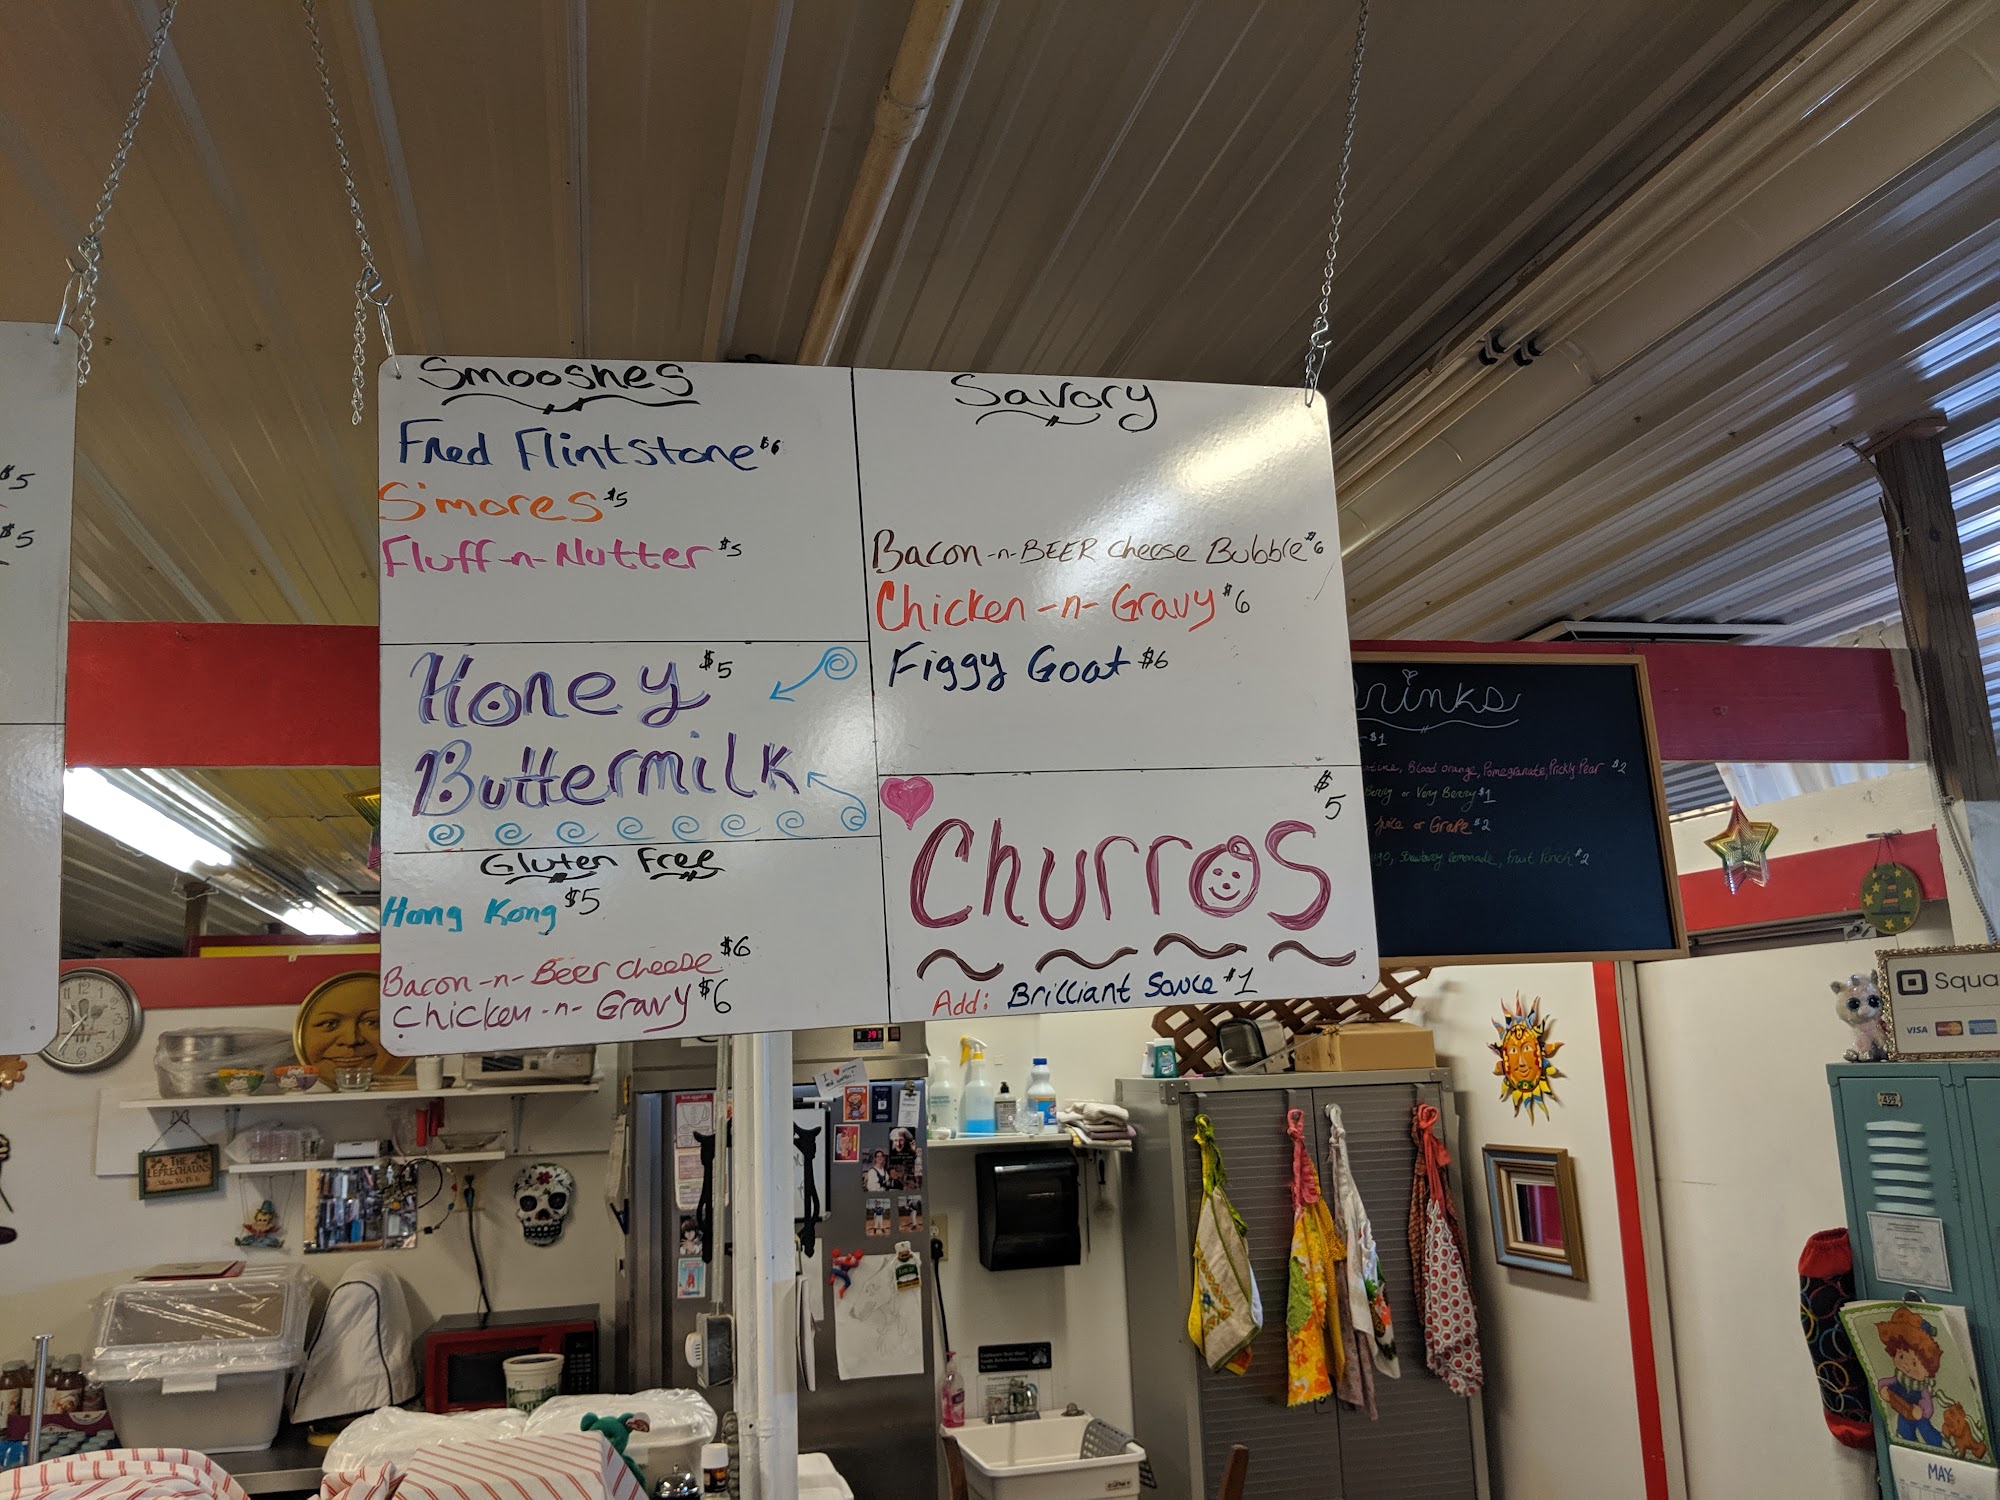 $5
$5
Smooshes
Fred Flintstone $6
S'mores $5
Fluff-n-Nutter $5
Honey $5
Buttermilk
Gluten Free
Hong Kong $5
Bacon-n-Beer cheese $6
Chicken-n-Gravy $6
Savory
Bacon-n-BEER cheese Bubble $6
Chicken-n-Gravy $6
Figgy Goat $6
Churros $5
Add: Brilliant Sauce $1
rinks
$1
Blood orange, Pomegranate, Prickly Pear $2
or Very Berry $1
or Grape $2
Strawberry Lemonade, Fruit Punch $2
Squa
VISA
THE
LEPRECHAUNS
Made Me Do It
459
MAY